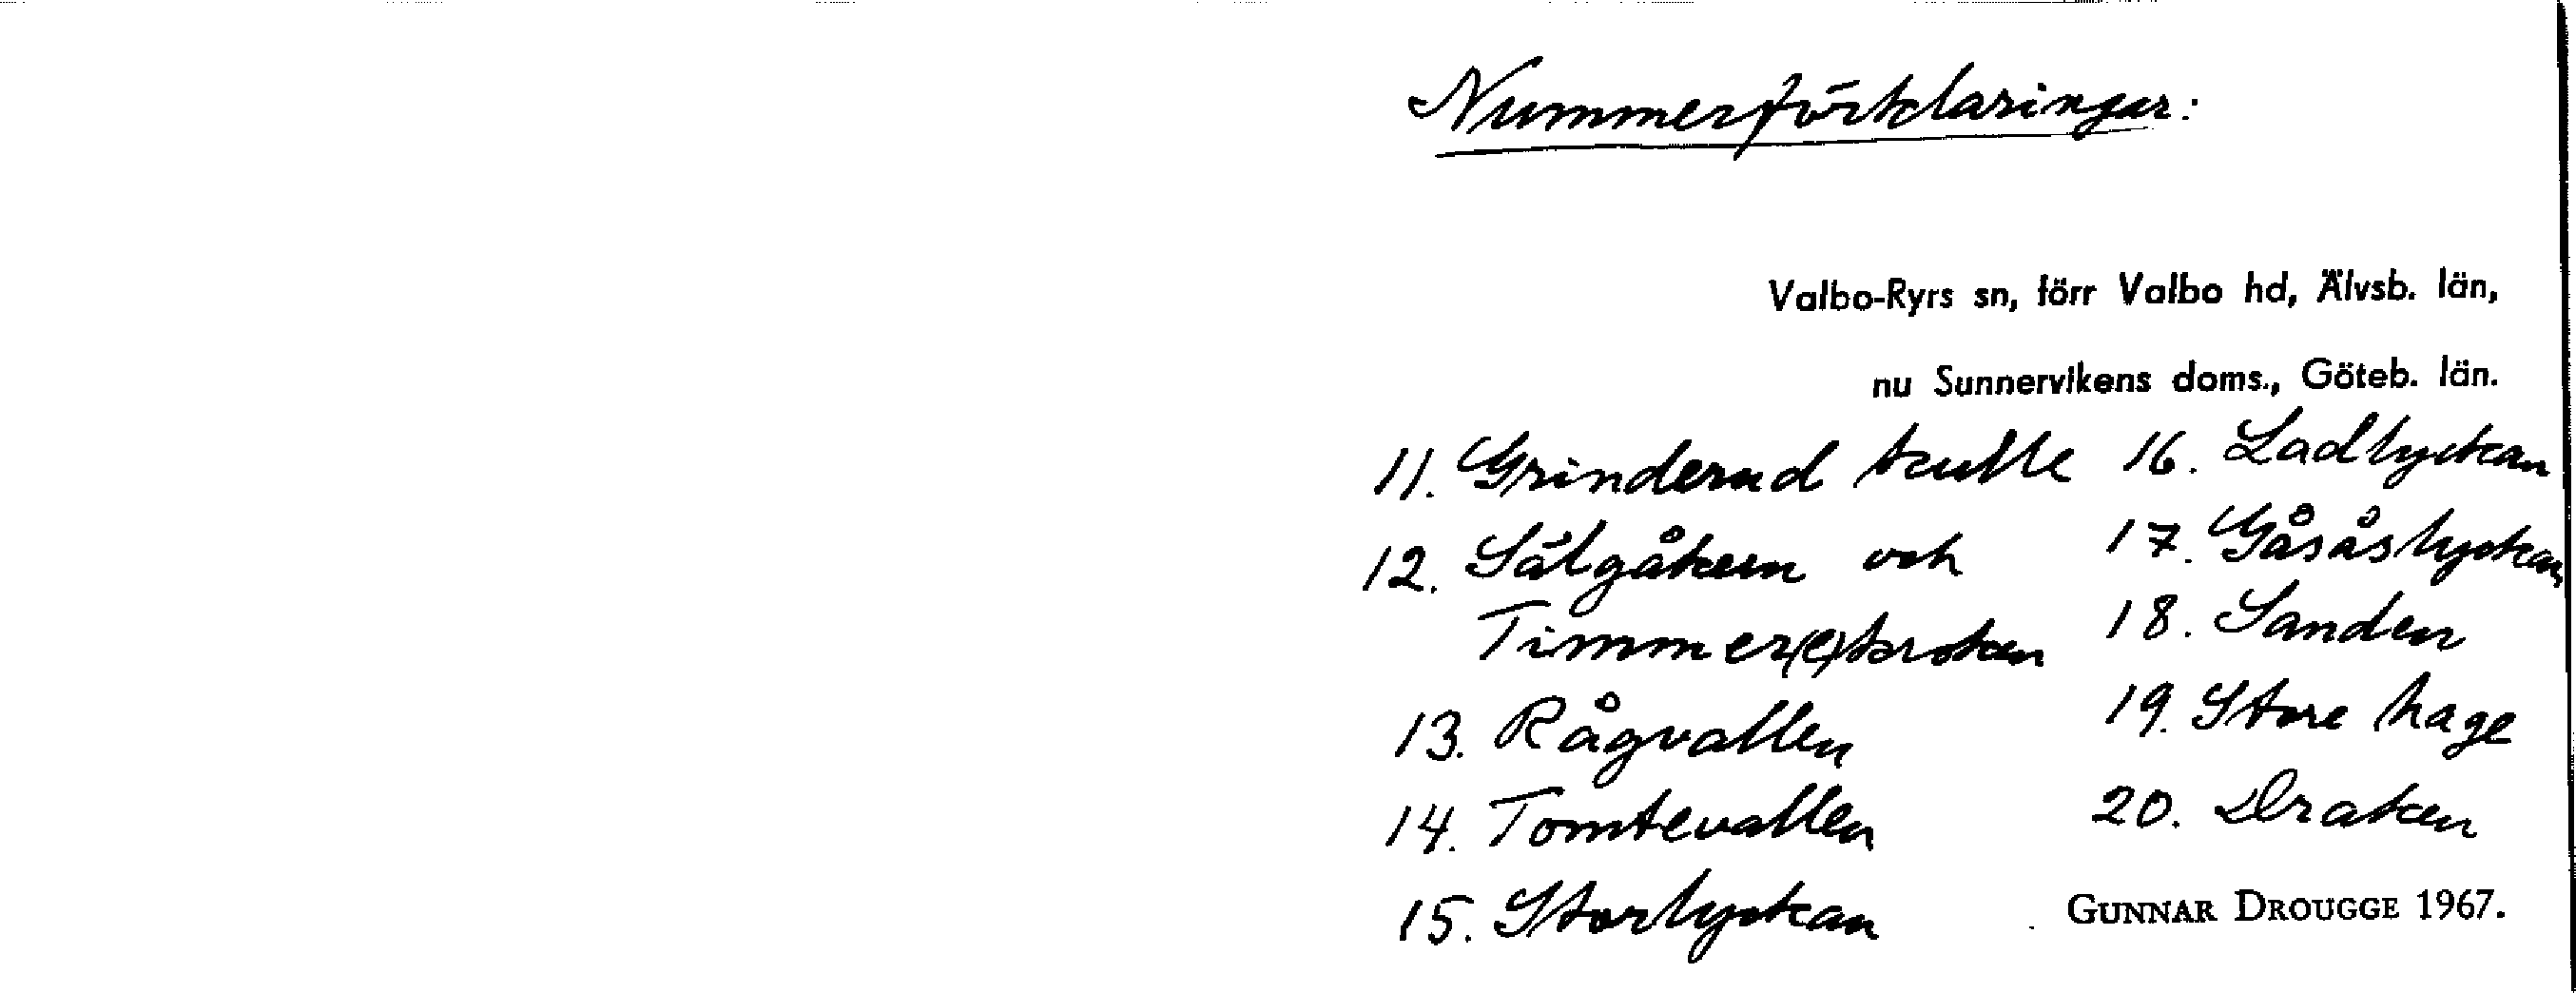 Nummerförklaringar:
Valbo-Ryrs sn, förr Valbo hd, Älvsb. län,
nu Sunnervikens doms., Göteb. län.
11. Grinderud kulle
12. Sälgåkern och
Timmer(e)kroken
13. Rågvallen
14. Tomtevallen
15. Storlyckan
16. Ladlyckan
17. Gåsåslyckan
18. Sanden
19. Store hage
20. Draken
GUNNAR DROUGGE 1967.